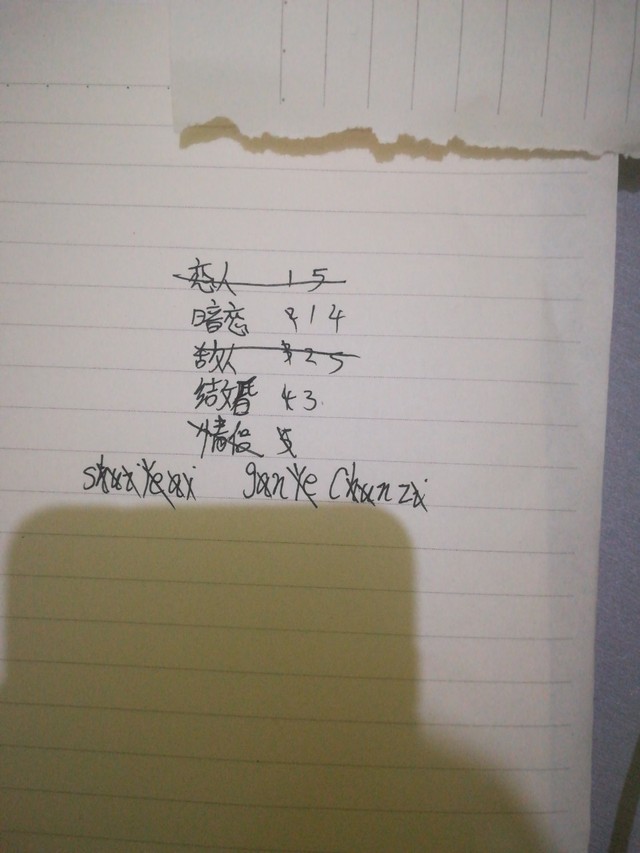 恋人 1 5
暗恋 2 1 4
敌人 3 2 5
结婚 4 3
情侣 5
shuiyeaxi ganye Chunzi